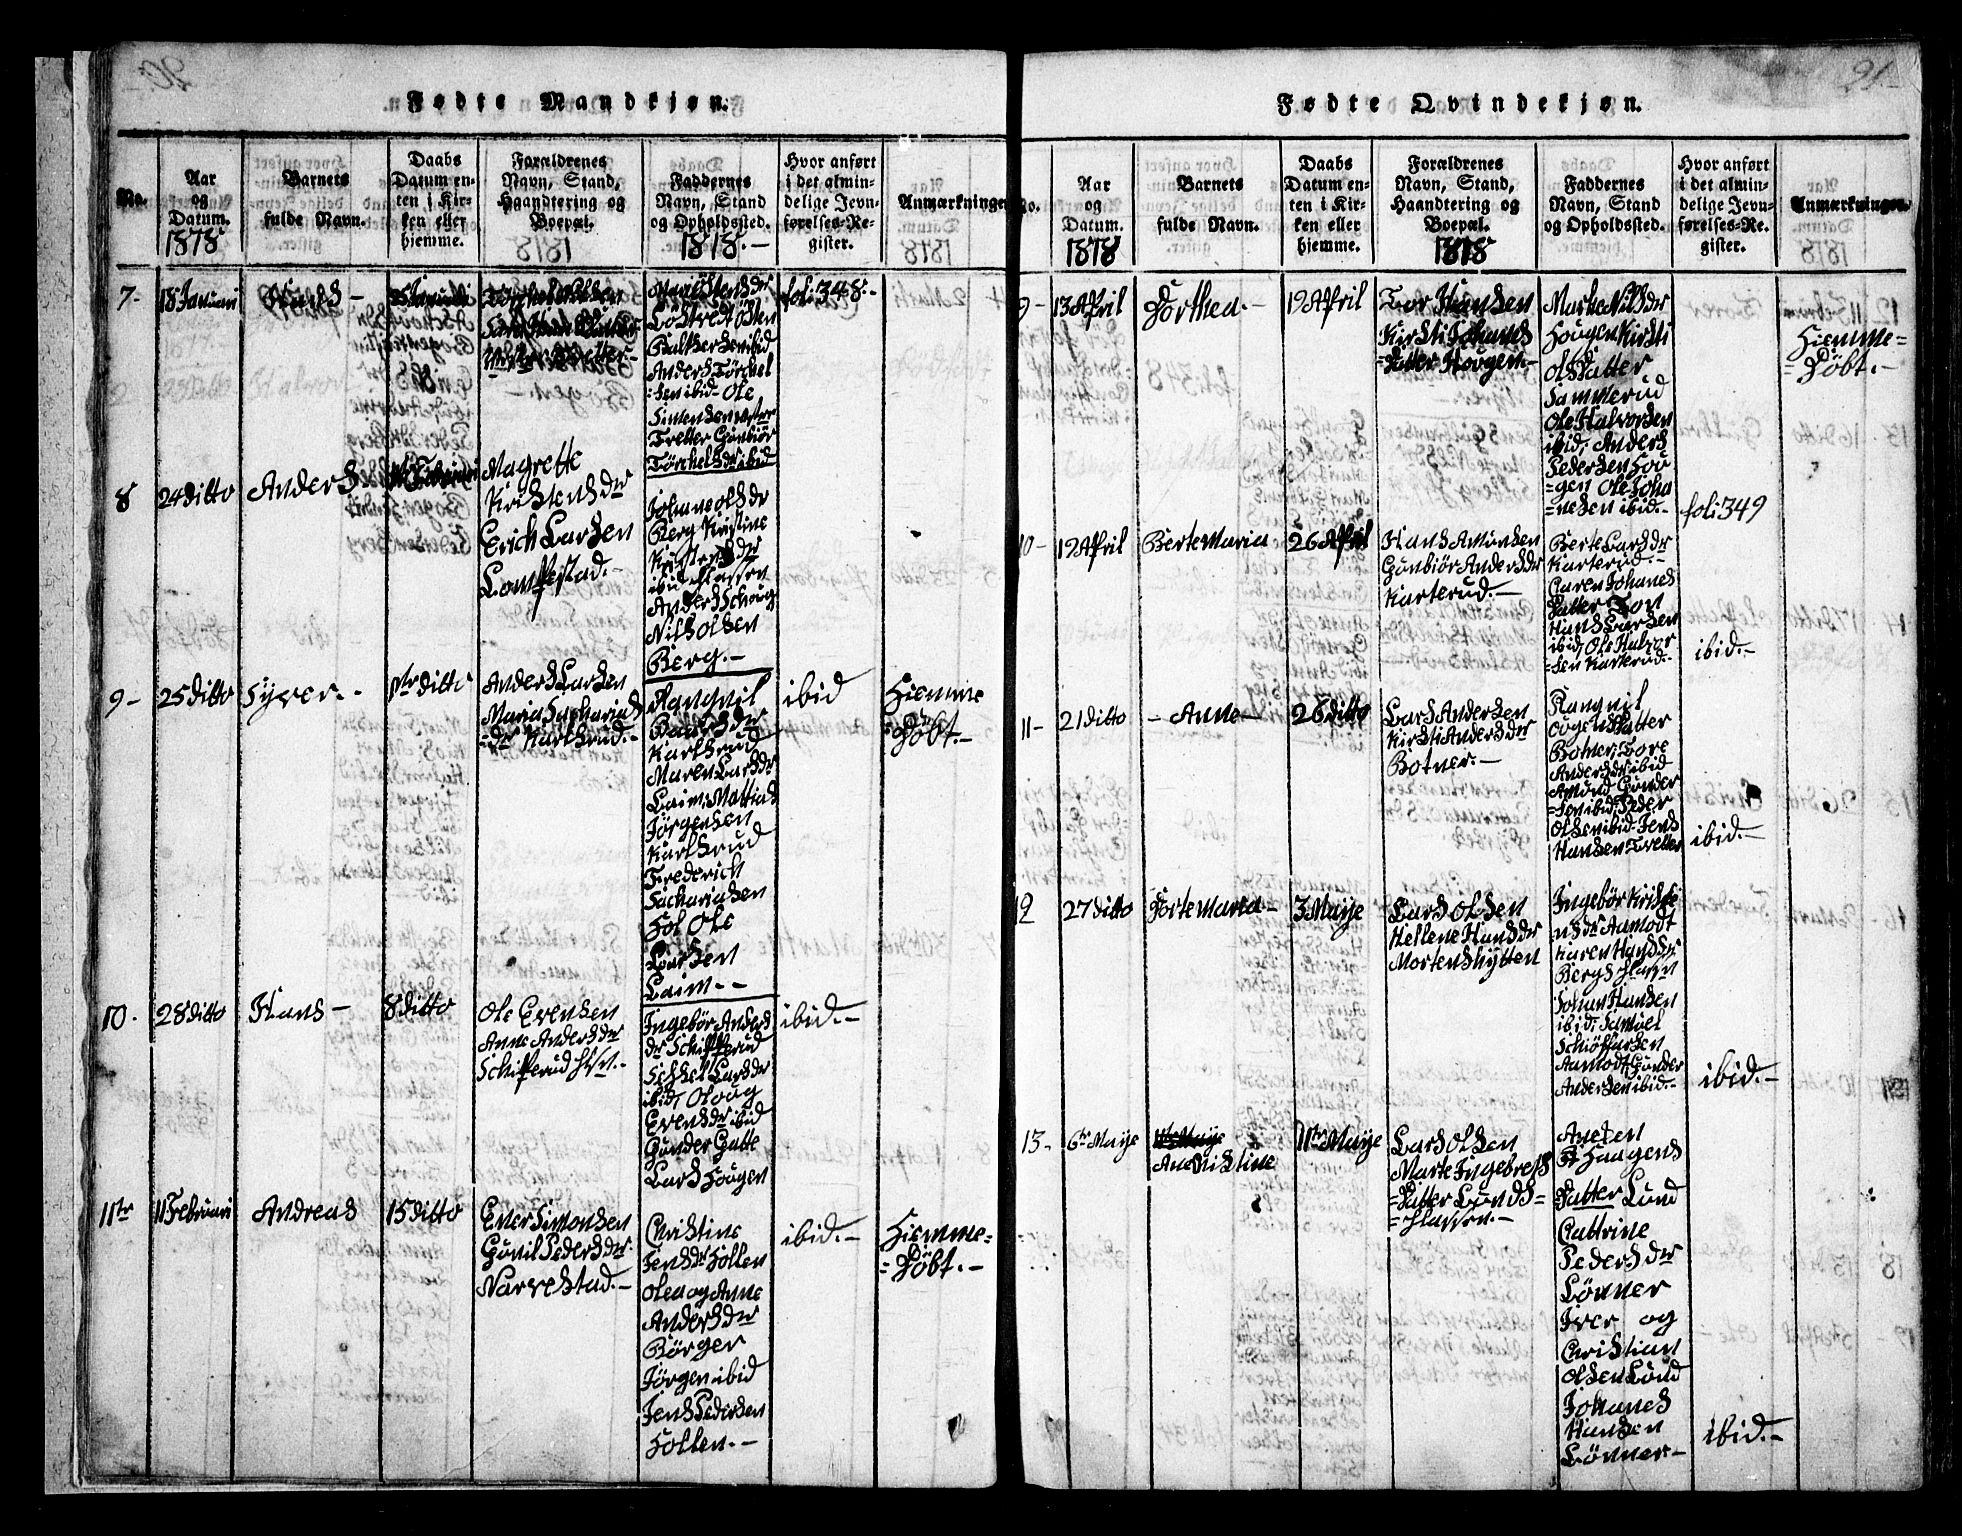 Fødte Mandkjøn.
No.
Aar
og
Datum.
1818
Barnets
fulde Navn.
Daabs
Datum en-
ten i Kir-
ken eller
hjemme.
Forældrenes
Navn, Stand,
Haandtering og
Boepæl.
Faddernes
Navn, Stand
og Opholdssted.
1818.-
Hvor anført
i det almin-
delige Jevn-
førelses-Re-
gister.
Anmærkninger
7-
18 Januari
Lars-
Marie
Olsen
ibid
Anders Törchel
=sen ibid- Ole
Simensen
Tretter Gunbiör
Törchelsdr ibid
foli 348.-
8
24 ditto
Anders
Februari
Magrette
Kristensdr
Erich Larsen
Lomsestad.-
Johane olsdr
Berg Kirstine
Kristensdr
ibid
Anders Schoug
Nils olsen
Berg.-
9-
25 ditto
Syver.-
1ste ditto
Anders Larsen
Maria Sacharias
=dr Karlsrud.-
Rangnil
Karlsrud
Maren Larsdr
Laim, Mattias
Jörgensen
Karlsrud
Frederich
Sachariasen
Hol Ole
Larsen
Laim--
ibid
Hiemme
Döbt.-
10.
28 ditto
Hans-
8 ditto
Ole Evensen
Anne Andersdr
Schifferud
Ingebör Anders
dr Schifferud
Larsdr
ibid,
Evensdr ibid
Gunder Gutte
Lars Hougen
ibid.-
11te
11 Februari
Andreas
15 ditto
Ever Simonsen
Gunil Pedersdr
Narvestad.-
Christine
Jensdr Hollen
olea og Anne
Andersdr
Börger
Jörgen ibid
Jens Pedersen
Hollen.-
ibid.-
Hiemme=
=Döbt.-
91.-
Fødte Qvindekjøn.
No.
Aar
og
Datum.
1818
Barnets
fulde Navn.
Daabs
Datum en-
ten i Kir-
ken eller
hjemme.
Forældrenes
Navn, Stand,
Haandtering og
Boepæl.
1818
Faddernes
Navn, Stand
og Opholdssted.
Hvor anført
i det almin-
delige Jevn-
førelses-Re-
gister.
Anmærkninger
9-
13 April
Dorthea.-
19 April
Tor Hansen
Kirsti Johanes
=Datter Hougen-
Marte Nilsdr
Hougen Kirsti
olsDatter
Sammerud
Ole Halvorsen
ibid, Anders
Pedersen Hou
=gen Ole Joha
=nesen ibid.-
foli 349
Hiemme=
=Döbt.-
10-
19 April
Berte Maria
26 April
Hans Amunsen
Gunbiör Andersdr
Karterud.-
Berte Larsdr
Karterud.-
Caren Johanes
Datter
Hans Larsen
ibid, Ole Halvor
=sen Karterud.-
ibid.-
11-
21 ditto
-Anne-
26 ditto
Lars Andersen
Kirsti Andersdr
Botner.-
Rangnil
Datter
Botner, Tore
Andersdr ibid
Amund Gunder
=sen ibid, Peder
Olsen ibid- Jens
Hansen Tretter
ibid.-
12
27 ditto
Dorte Maria-
3 Maije
Lars olsen
Hellene Hansdr
Mortenshytten
Ingebör Kriste
nsdr Aamodt
Karen Hansdr
Bergs
Johan Hansen
ibid, Samöel
Aamodt, Gunder
Andersen ibid.-
ibid.-
13-
6te Maije
Ane Kistine
11te Maije
Lars olsen
Marte Ingebrets
=Datter Lunds=
Haagens
Datter Lund
Cattrine
Pedersdr
Lönner
Iver og
Christian
olsen Lund
Johanes
Hansen
Lönner-
ibid.-